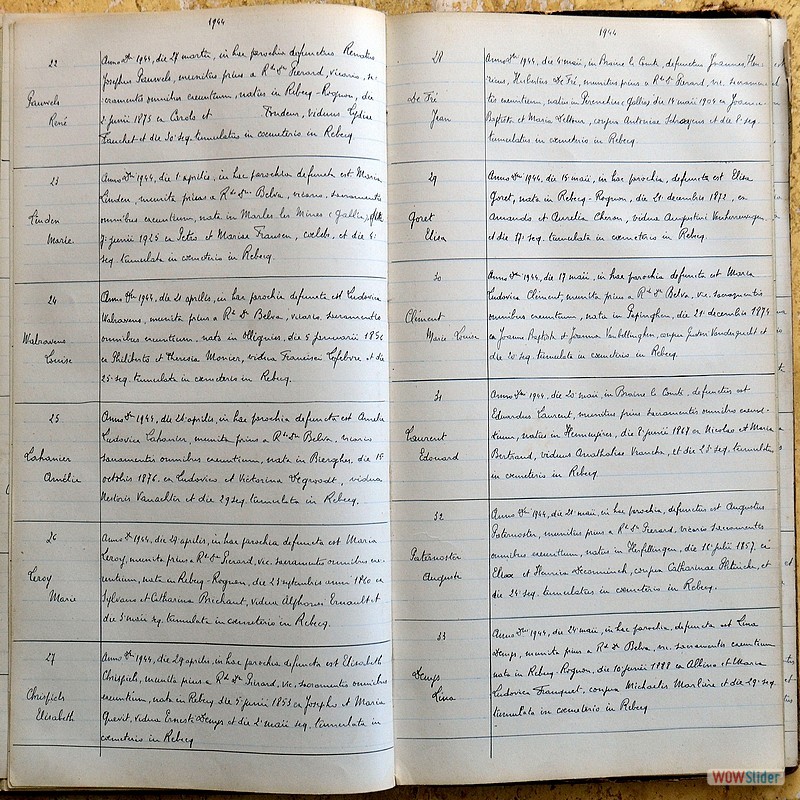 1944
22
Pauwels
René
Anno Dni 1944, die 27 martii, in hac parochia defunctus Renatus
Josephus Pauwels, munitus prius a Rdo Dno Pierard, vicario, sa-
cramentis omnibus exeuntium, natus in Rebecq-Rognon, die
2 junii 1873 ex Carolo et Frudeur, viduus Lydiae
Fauchet et die 30 seq. tumulatus in coemeterio in Rebecq.
23
Linden
Marie
Anno Dni 1944, die 1 aprilis, in hac parochia defuncta est Maria
Linden, munita prius a Rdo Dno Belva, vicario, sacramentis
omnibus exeuntium, nata in Marles les Mines (Gallia) die
junii 1925 ex Petro et Maria Fransen, coelebs, et die 4
seq. tumulata in coemeterio in Rebecq.
24
Walravens
Louise
Anno Dni 1944, die 21 aprilis, in hac parochia defuncta est Ludovica
Walravens, munita prius a Rdo D. Belva, vicario, sacramentis
omnibus exeuntium, nata in Ollignies, die 5 januarii
ex Philiberto et Theresia Monier, vidua Francisci Lefebvre et die
25 seq. tumulata in coemeterio in Rebecq.
25
Cahanier
Amélie
Anno Dni 1944, die 26 aprilis, in hac parochia defuncta est Amelia
Ludovica Cahanier, munita prius a Rdo Dno Belva, vicario
sacramentis omnibus exeuntium, nata in Bierghes, die 19
octobris 1876, ex Ludovico et Victorina Segroodt, vidua
Nestoris Vanachter et die 29 seq. tumulata in Rebecq.
26
Leroy
Marie
Anno D. 1944, die 29 aprilis, in hac parochia defuncta est Maria
Leroy, munita prius a Rdo Dno Pierard, vic. sacramentis omnibus exe-
untium, nata in Rebecq-Rognon, die 23 septembris anni 1860 ex
Sylvano et Catharina Brichant, vidua Alphonsi Ernault et
die 3 maii seq. tumulata in coemeterio in Rebecq.
27
Chrispiels
Elisabeth
Anno Dni 1944, die 29 aprilis, in hac parochia defuncta est Elisabeth
Chrispiels, munita prius a Rdo Dno Pierard, vic. sacramentis omnibus
exeuntium, nata in Rebecq die 5 junii 1853 ex Josepho et Maria
Gravit, vidua Ernesti Demps et die 2 maii seq. tumulata in
coemeterio in Rebecq
1944
28
De Tré
Jean
Anno Dni 1944, die 4 maii, in Braine le Comte, defunctus Joannes, Hen-
ricus, Hubertus De Tré, munitus prius a Rdo D. Pierard, vic. sacramen-
tis exeuntium, natus in die 14 maii 1904 ex Joanne
Baptista et Maria conjux Antoniae et die 8 seq.
tumulatus in coemeterio in Rebecq.
29
Goret
Elisa
Anno Dni 1944, die 15 maii, in hac parochia, defuncta est Elisa
Goret, nata in Rebecq-Rognon, die 21 decembris 1872, ex
Armando et Aurelia Cheron, vidua Augustini
et die 17 seq. tumulata in coemeterio in Rebecq.
30
Clément
Marie Louise
Anno Dni 1944, die 17 maii, in hac parochia defuncta est Maria
Ludovica Clément, munita prius a Rdo Dno Belva, vic. sacramentis
omnibus exeuntium, nata in Papinghen, die 21 decembris 1874
ex Joanne Baptista et Joanna Vanbellinghen, conjux
die 20 seq. tumulata in coemeterio in Rebecq.
31
Laurent
Edouard
Anno Dni 1944, die 20 maii, in Braine le Comte, defunctus est
Eduardus Laurent, munitus prius sacramentis omnibus exeun-
tium, natus in Hennuyères, die 8 junii 1867 ex Nicolao et Maria
Bertrand, viduus Amathaliae Vrancka, et die 23 seq. tumulatus
in coemeterio in Rebecq.
32
Paternoster
Auguste
Anno Dni 1944, die 21 maii, in hac parochia, defunctus est Augustus
Paternoster, munitus prius a Rdo Dno Pierard, vicario sacramentis
omnibus exeuntium, natus in Herffelingen, die 16 julii 1857, ex
Elisa et Henrica Decorninck, conjux Catharinae et
die 24 seq. tumulatus in coemeterio in Rebecq.
33
Demps
Lina
Anno Dni 1944, die 24 maii, in hac parochia, defuncta est Lina
Demps, munita prius a Rdo D. Belva, vic. sacramentis exeuntium
nata in Rebecq-Rognon, die 10 junii 1888 ex Albino et Maria
Ludovica Franquet, conjux Michaelis Marlière et die 29 seq.
tumulata in coemeterio in Rebecq
WOWSlider